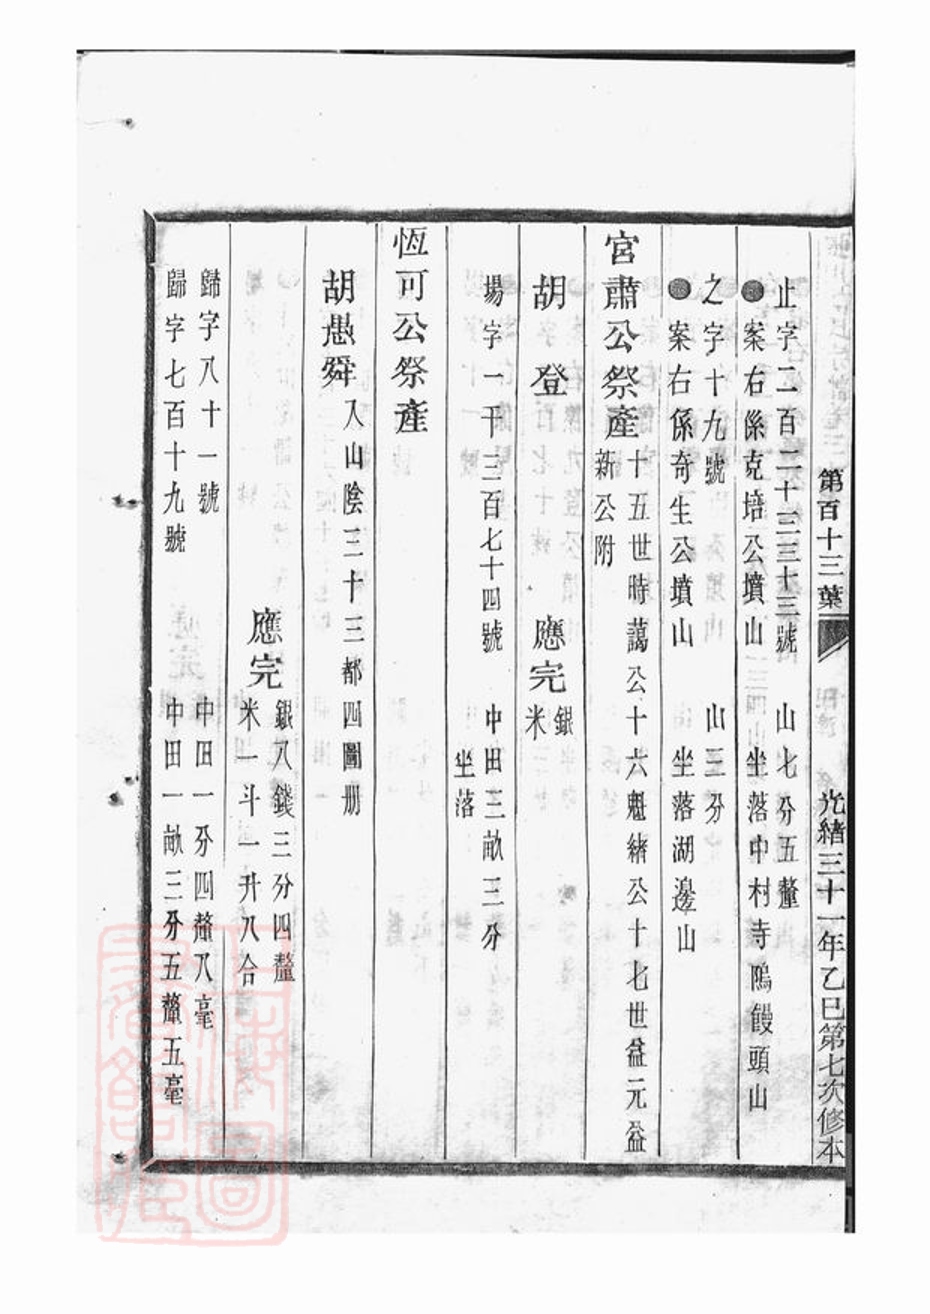 第百十三葉 光緒三十一年乙巳第七次修本
止字二百二十三三十三號 山七分五釐
●案右係克培公墳山 坐落中村寺隖饅頭山
之字十九號 山三分
●案右係奇生公墳山 坐落湖邊山
宮肅公祭產
十五世時藹公十六魁緒公十七世益元益
新公附
胡登 應完
銀
米
場字一千三百七十四號 中田三畝三分
坐落
恆可公祭產
胡愚舜 入山陰三十三都四圖册
應完
銀八錢三分四釐
米一斗一升八合
歸字八十一號 中田一分四釐八毫
歸字七百十九號 中田一畝三分五釐五毫